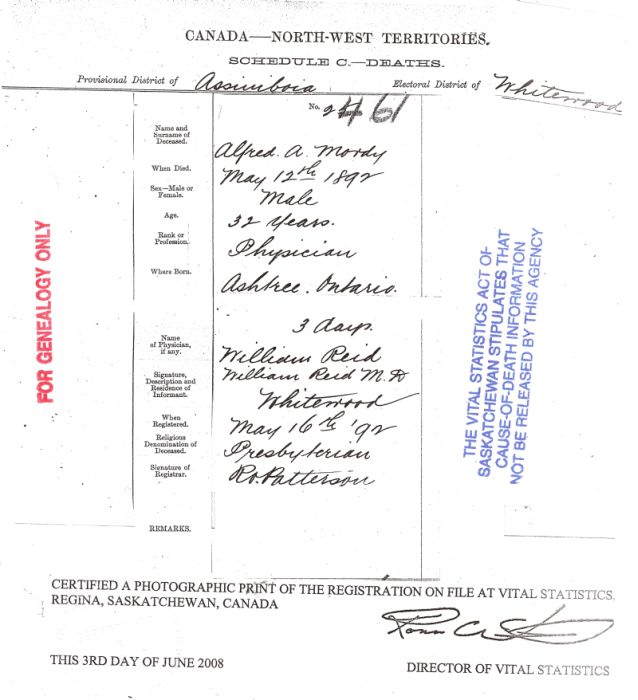 CANADA—NORTH-WEST TERRITORIES.
SCHEDULE C.—DEATHS.
Provisional District of Assiniboia Electoral District of Whitewood
No. 461
Name and Surname of Deceased. Alfred. A. Mordy
When Died. May 12th 1892
Sex—Male or Female. Male
Age. 32 Years.
Rank or Profession. Physician
Where Born. Ashtree. Ontario.
3 days.
Name of Physician, if any. William Reid
Signature, Description and Residence of Informant. William Reid M.D
Whitewood
When Registered. May 16th '92
Religious Denomination of Deceased. Presbyterian
Signature of Registrar. Patterson
REMARKS.
FOR GENEALOGY ONLY
THE VITAL STATISTICS ACT OF
SASKATCHEWAN STIPULATES THAT
CAUSE-OF-DEATH INFORMATION
NOT BE RELEASED BY THIS AGENCY
CERTIFIED A PHOTOGRAPHIC PRINT OF THE REGISTRATION ON FILE AT VITAL STATISTICS,
REGINA, SASKATCHEWAN, CANADA
THIS 3RD DAY OF JUNE 2008
DIRECTOR OF VITAL STATISTICS